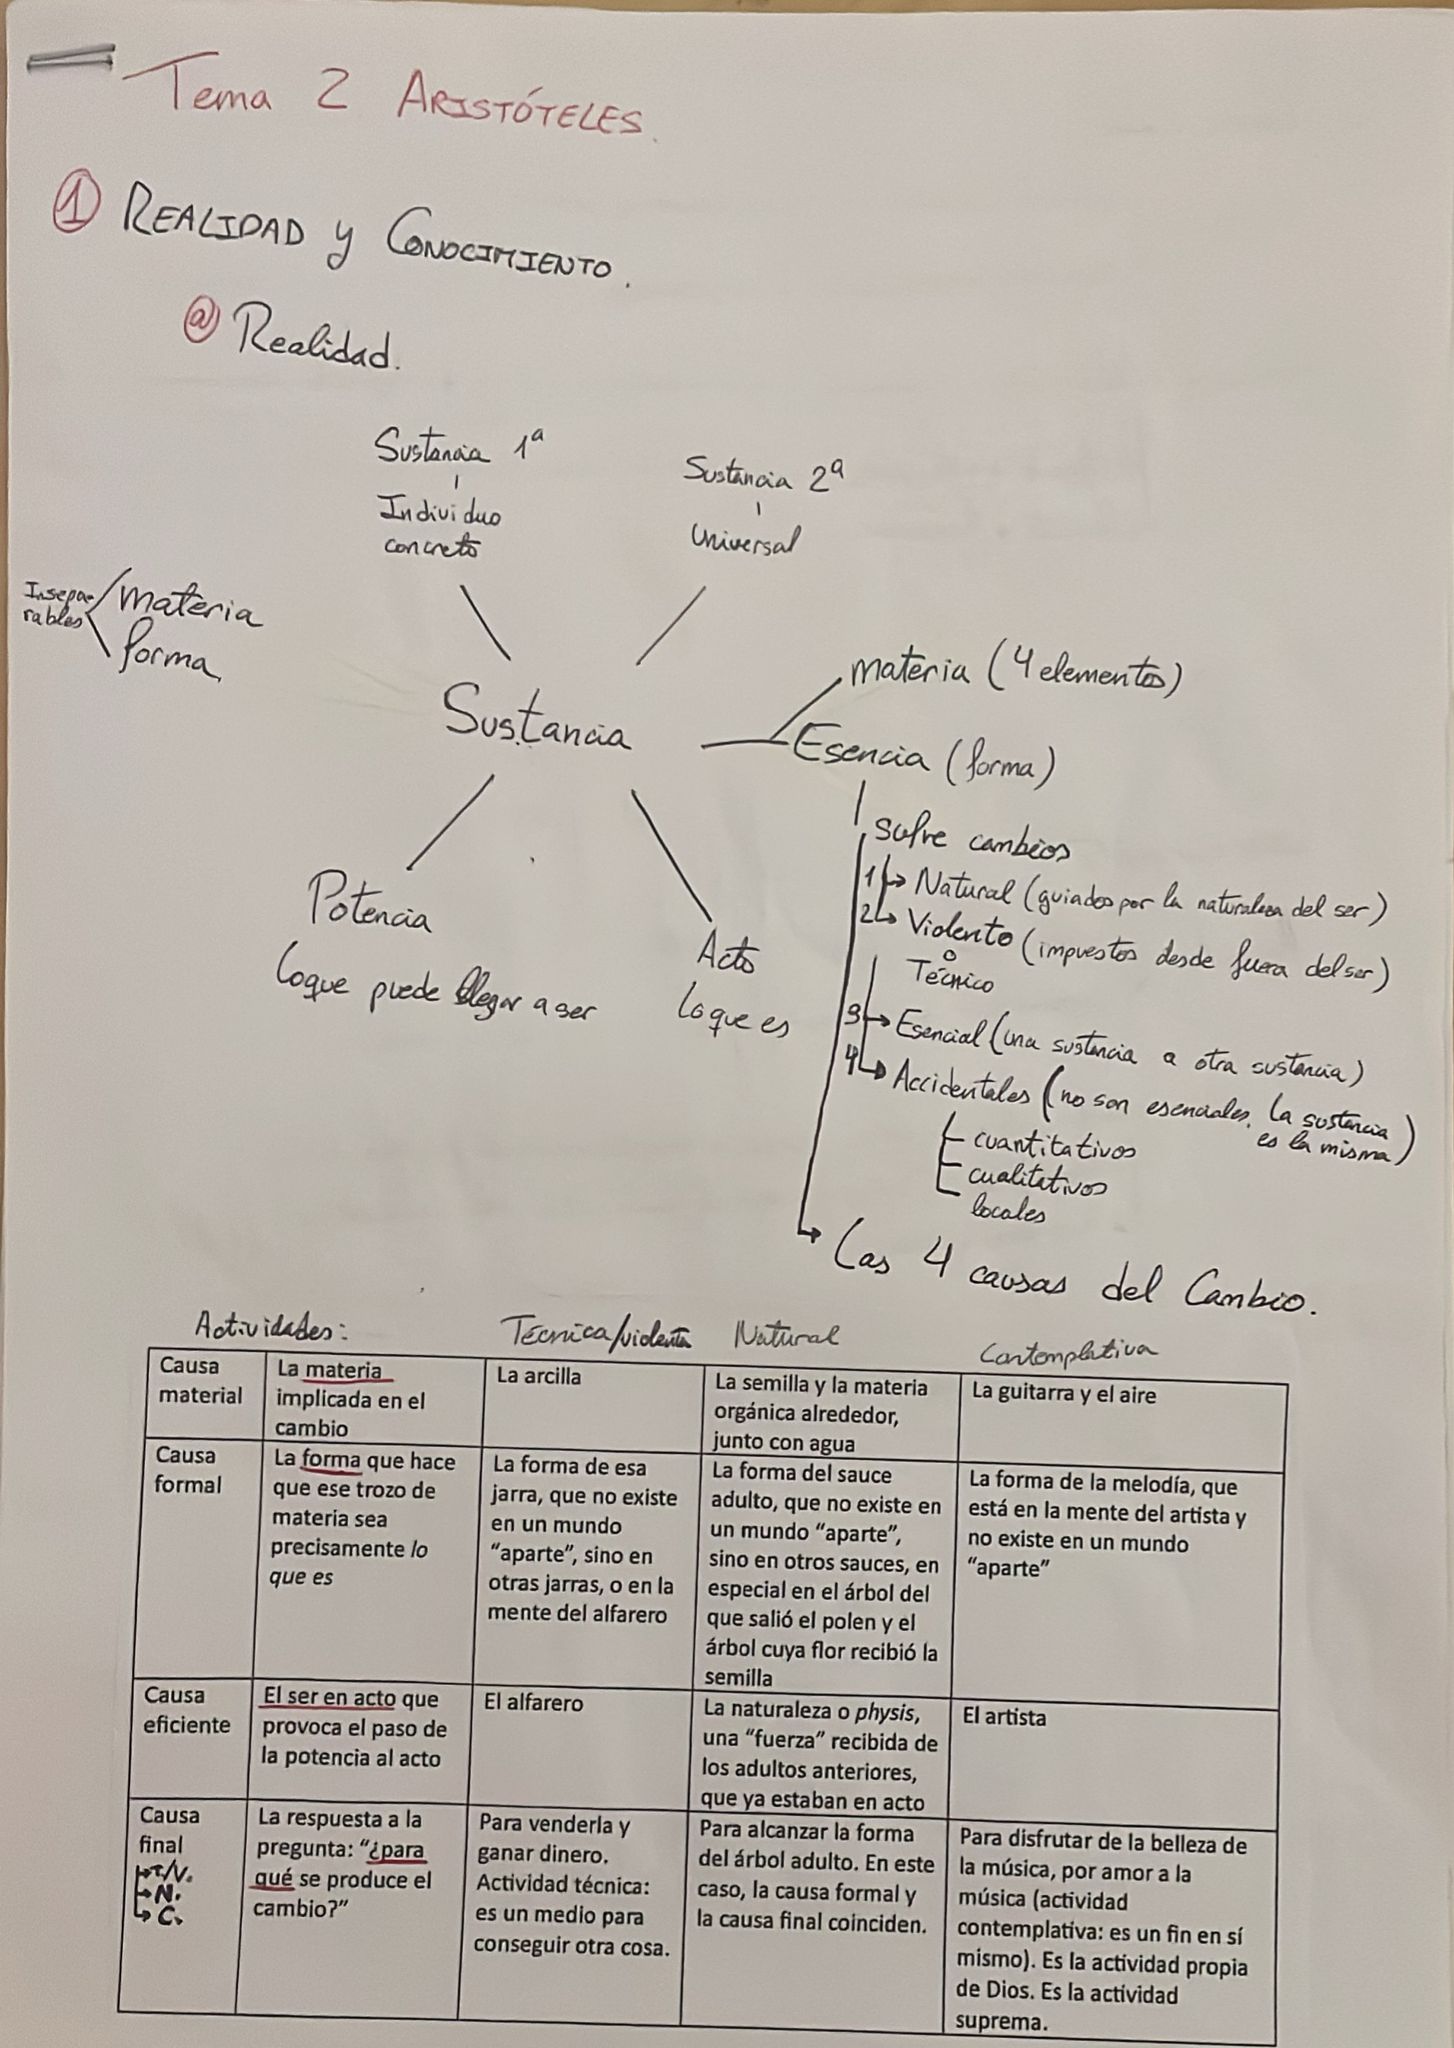 Tema 2 ARISTÓTELES.
① REALIDAD y CONOCIMIENTO.
ⓐ Realidad.
Sustancia 1ª
Individuo
concreto
Sustancia 2ª
Universal
Insepa-
rables
materia
forma
Sustancia
materia (4 elementos)
Esencia (forma)
sufre cambios
1 → Natural (guiados por la naturaleza del ser)
2 → Violento (impuestos desde fuera del ser)
o
Técnico
3 → Esencial (una sustancia a otra sustancia)
4 → Accidentales (no son esenciales. La sustancia
es la misma)
cuantitativos
cualitativos
locales
→ Las 4 causas del Cambio.
Potencia
Lo que puede llegar a ser
Acto
Lo que es
Actividades:
Técnica/violenta
Natural
Contemplativa
Causa
material
La materia
implicada en el
cambio
La arcilla
La semilla y la materia
orgánica alrededor,
junto con agua
La guitarra y el aire
Causa
formal
La forma que hace
que ese trozo de
materia sea
precisamente lo
que es
La forma de esa
jarra, que no existe
en un mundo
“aparte”, sino en
otras jarras, o en la
mente del alfarero
La forma del sauce
adulto, que no existe en
un mundo “aparte”,
sino en otros sauces, en
especial en el árbol del
que salió el polen y el
árbol cuya flor recibió la
semilla
La forma de la melodía, que
está en la mente del artista y
no existe en un mundo
“aparte”
Causa
eficiente
El ser en acto que
provoca el paso de
la potencia al acto
El alfarero
La naturaleza o physis,
una “fuerza” recibida de
los adultos anteriores,
que ya estaban en acto
El artista
Causa
final
→ T/V.
→ N.
→ C.
La respuesta a la
pregunta: “¿para
qué se produce el
cambio?”
Para venderla y
ganar dinero.
Actividad técnica:
es un medio para
conseguir otra cosa.
Para alcanzar la forma
del árbol adulto. En este
caso, la causa formal y
la causa final coinciden.
Para disfrutar de la belleza de
la música, por amor a la
música (actividad
contemplativa: es un fin en sí
mismo). Es la actividad propia
de Dios. Es la actividad
suprema.